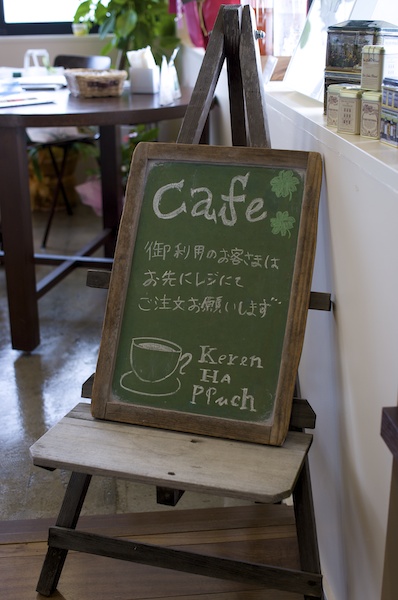 Cafe
御利用のお客さまは
お先にレジにて
ご注文お願いします
Keren
HA
PPuch